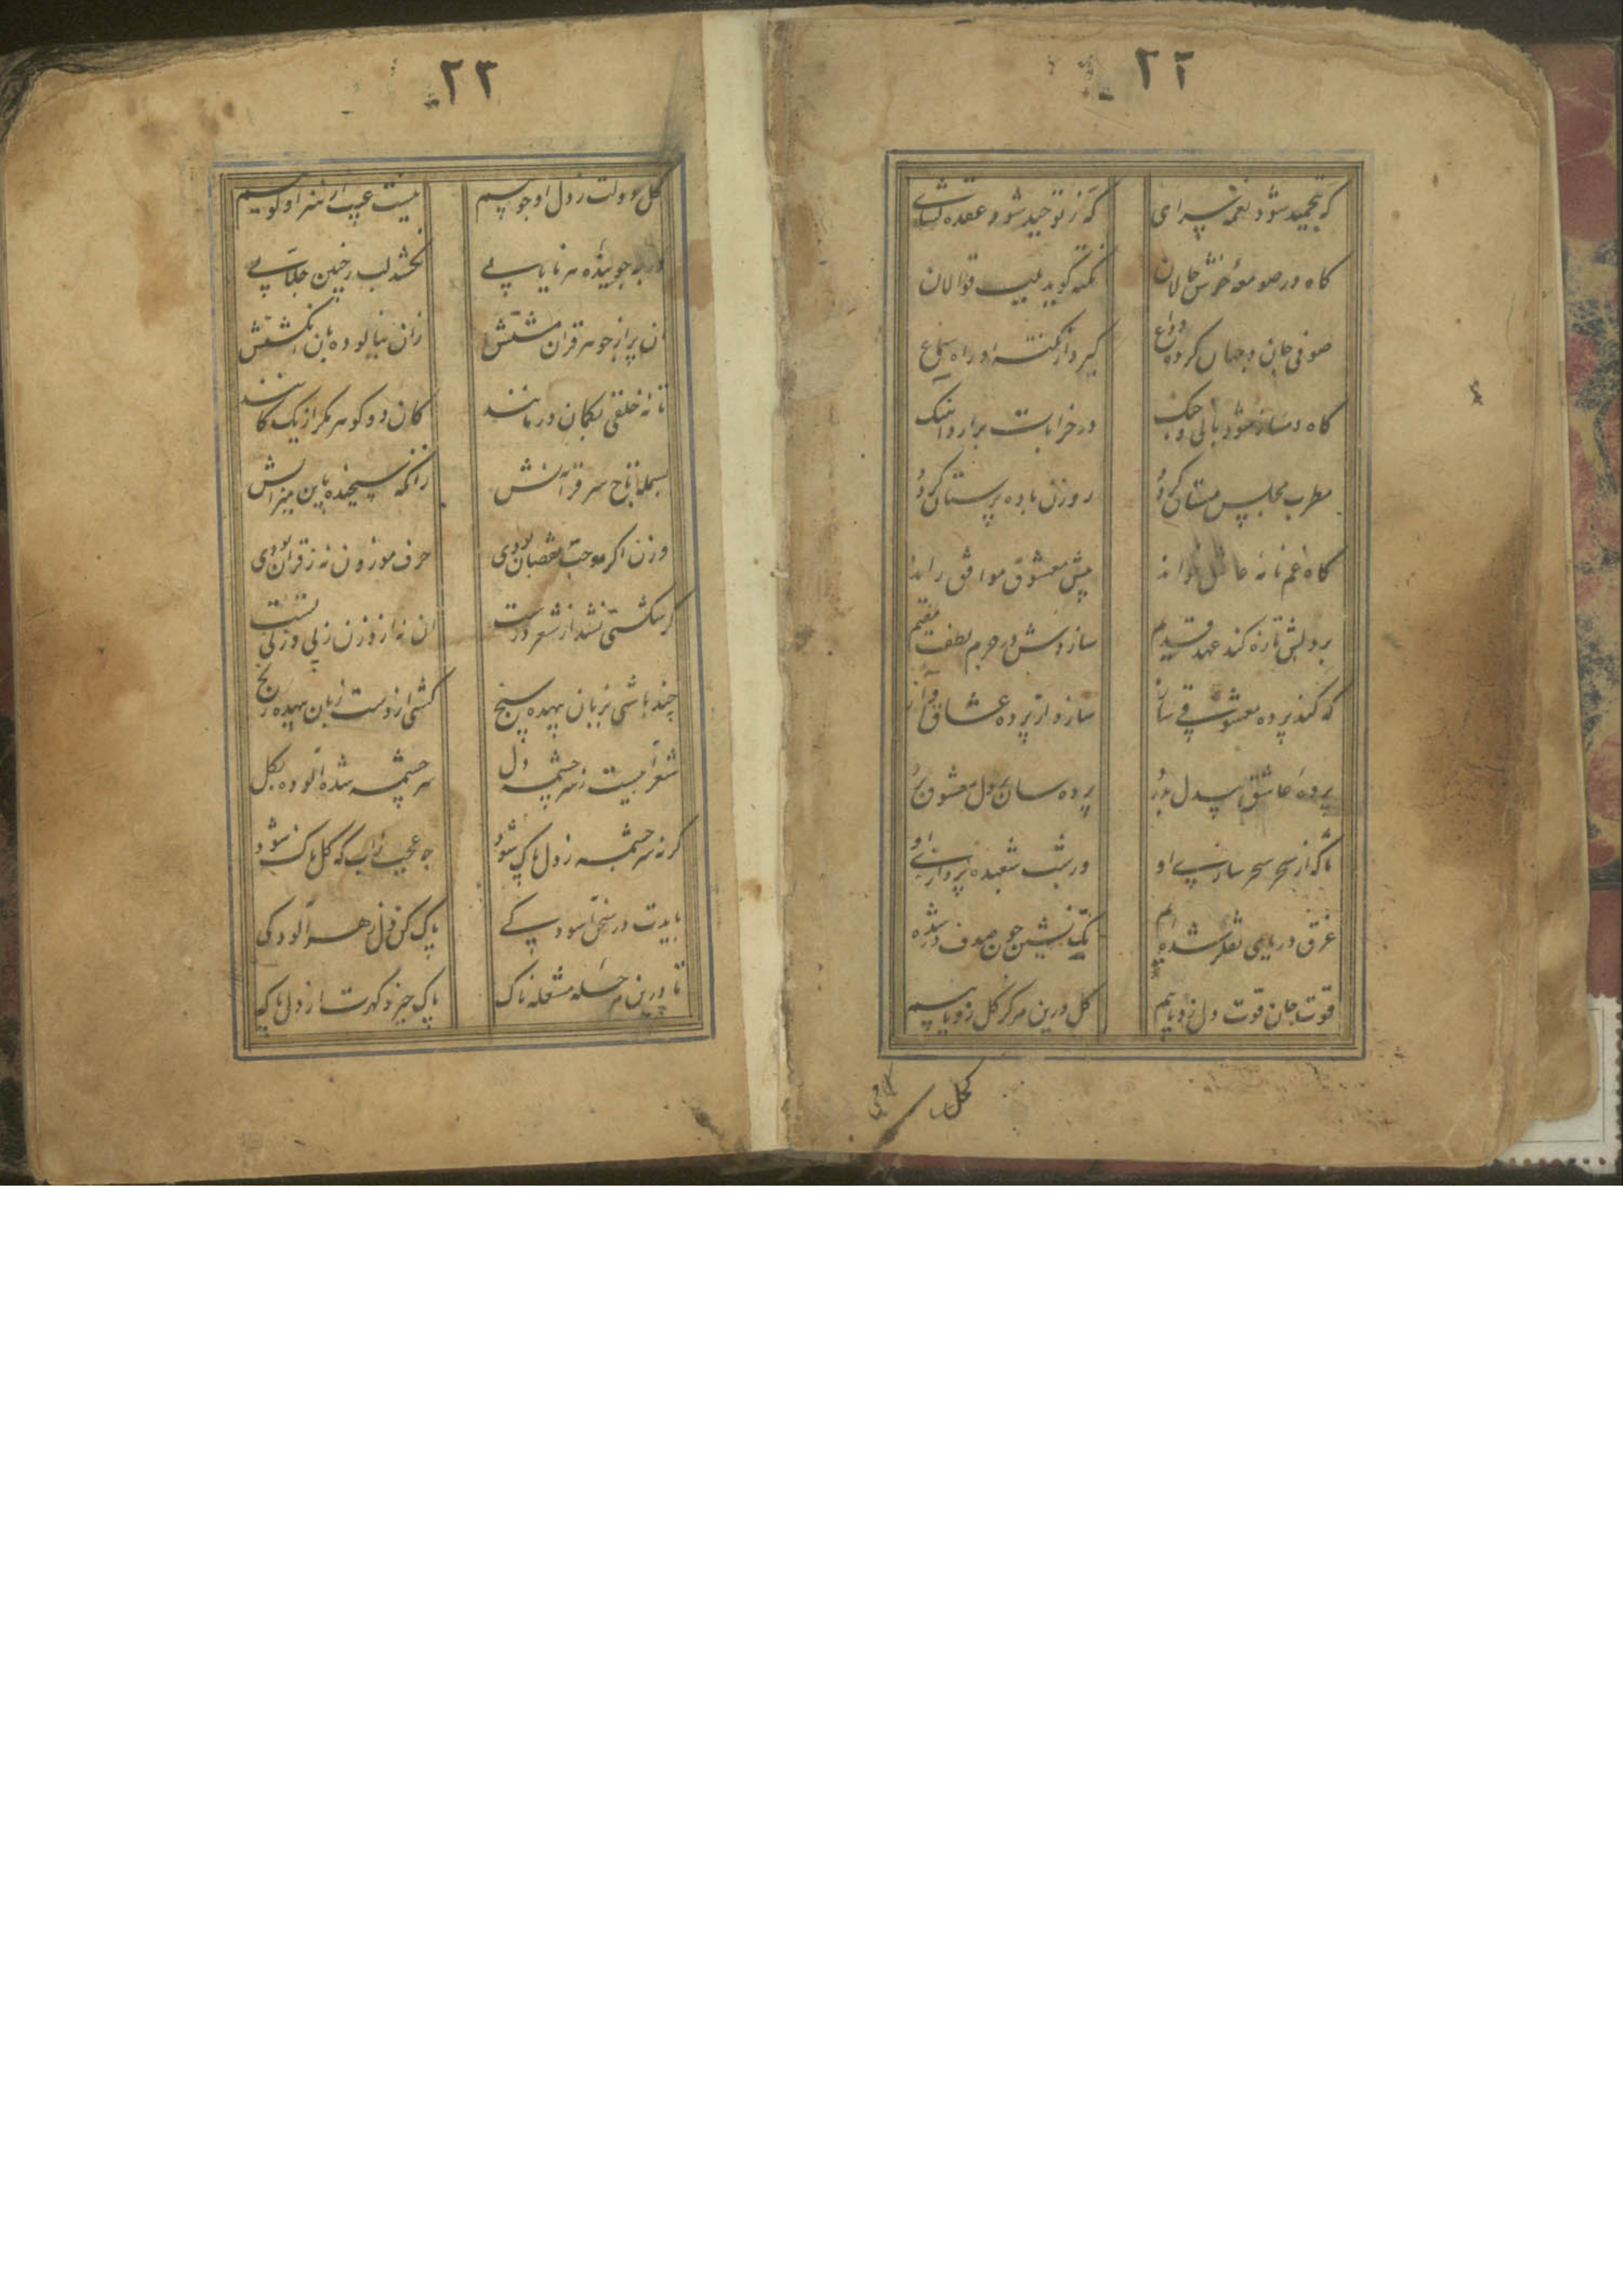 ۲۲
که بتحمید شود نغمه سرای
که ز توحید شود عقده گشای
گاه در صومعهٔ خوش حالان
نکته گوید بلب قوالان
صوفی جان و جهان کرده وداع
گیرد از نکته او راه سماع
گاه دمساز شود با نی و چنگ
در خرابات برارد آهنگ
مطرب مجلس مستان گردد
ره زن باده پرستان گردد
گاه غم نامه عاشق خواند
پیش معشوق موافق راند
بر دلش تازه کند عهد قدیم
سازدش در حرم لطف مقیم
گه کند پرده معشوقی ساز
سازد از پرده عشاق آواز
پرده عاشق بیدل بدرد
پرده سان دل معشوق برد
ماکه از سحر سحر سازی او
در شب شعبده پردازی او
غرق دریای تفکر شده ایم
تک نشین چون صدف در شده
قوت جان قوت دل زو یابیم
کل درین مرکز گل زو یابیم
گل
۲۳
گل دولت ز دل او جوییم
نیست عیب ار هنر او گوییم
در به جوینده هر نایابی
نخشد لب ز چنین جلابی
آن پر از جوهر قران مشتش
زان نیالوده بان انگشتش
تا نه خلقی بگمان درمانند
کان دو گوهر مگر از یک کانند
بسمله تاج سر قرآنش
زانکه سنجیده باین میزانش
وزن اگر موجب نقصان بودی
حرف موزون نه ز قران بودی
گر شکستی نشد از شعر درست
آن نه از وزن ز بی وزنی تست
چند باشی بزبان بیهده سنج
کشی از دست زبان بیهده رنج
شعر آبیست ز سرچشمه دل
سرچشمه شده آلوده بگل
گر نه سرچشمه ز دل پاک شود
چه عجب زاب که گلناک شود
بایدت در سخن آسودگی
پاک کن دل ز هر آلودگی
تا درین مرحله مشغله ناک
پاک خیزد گهرت از دل پاک